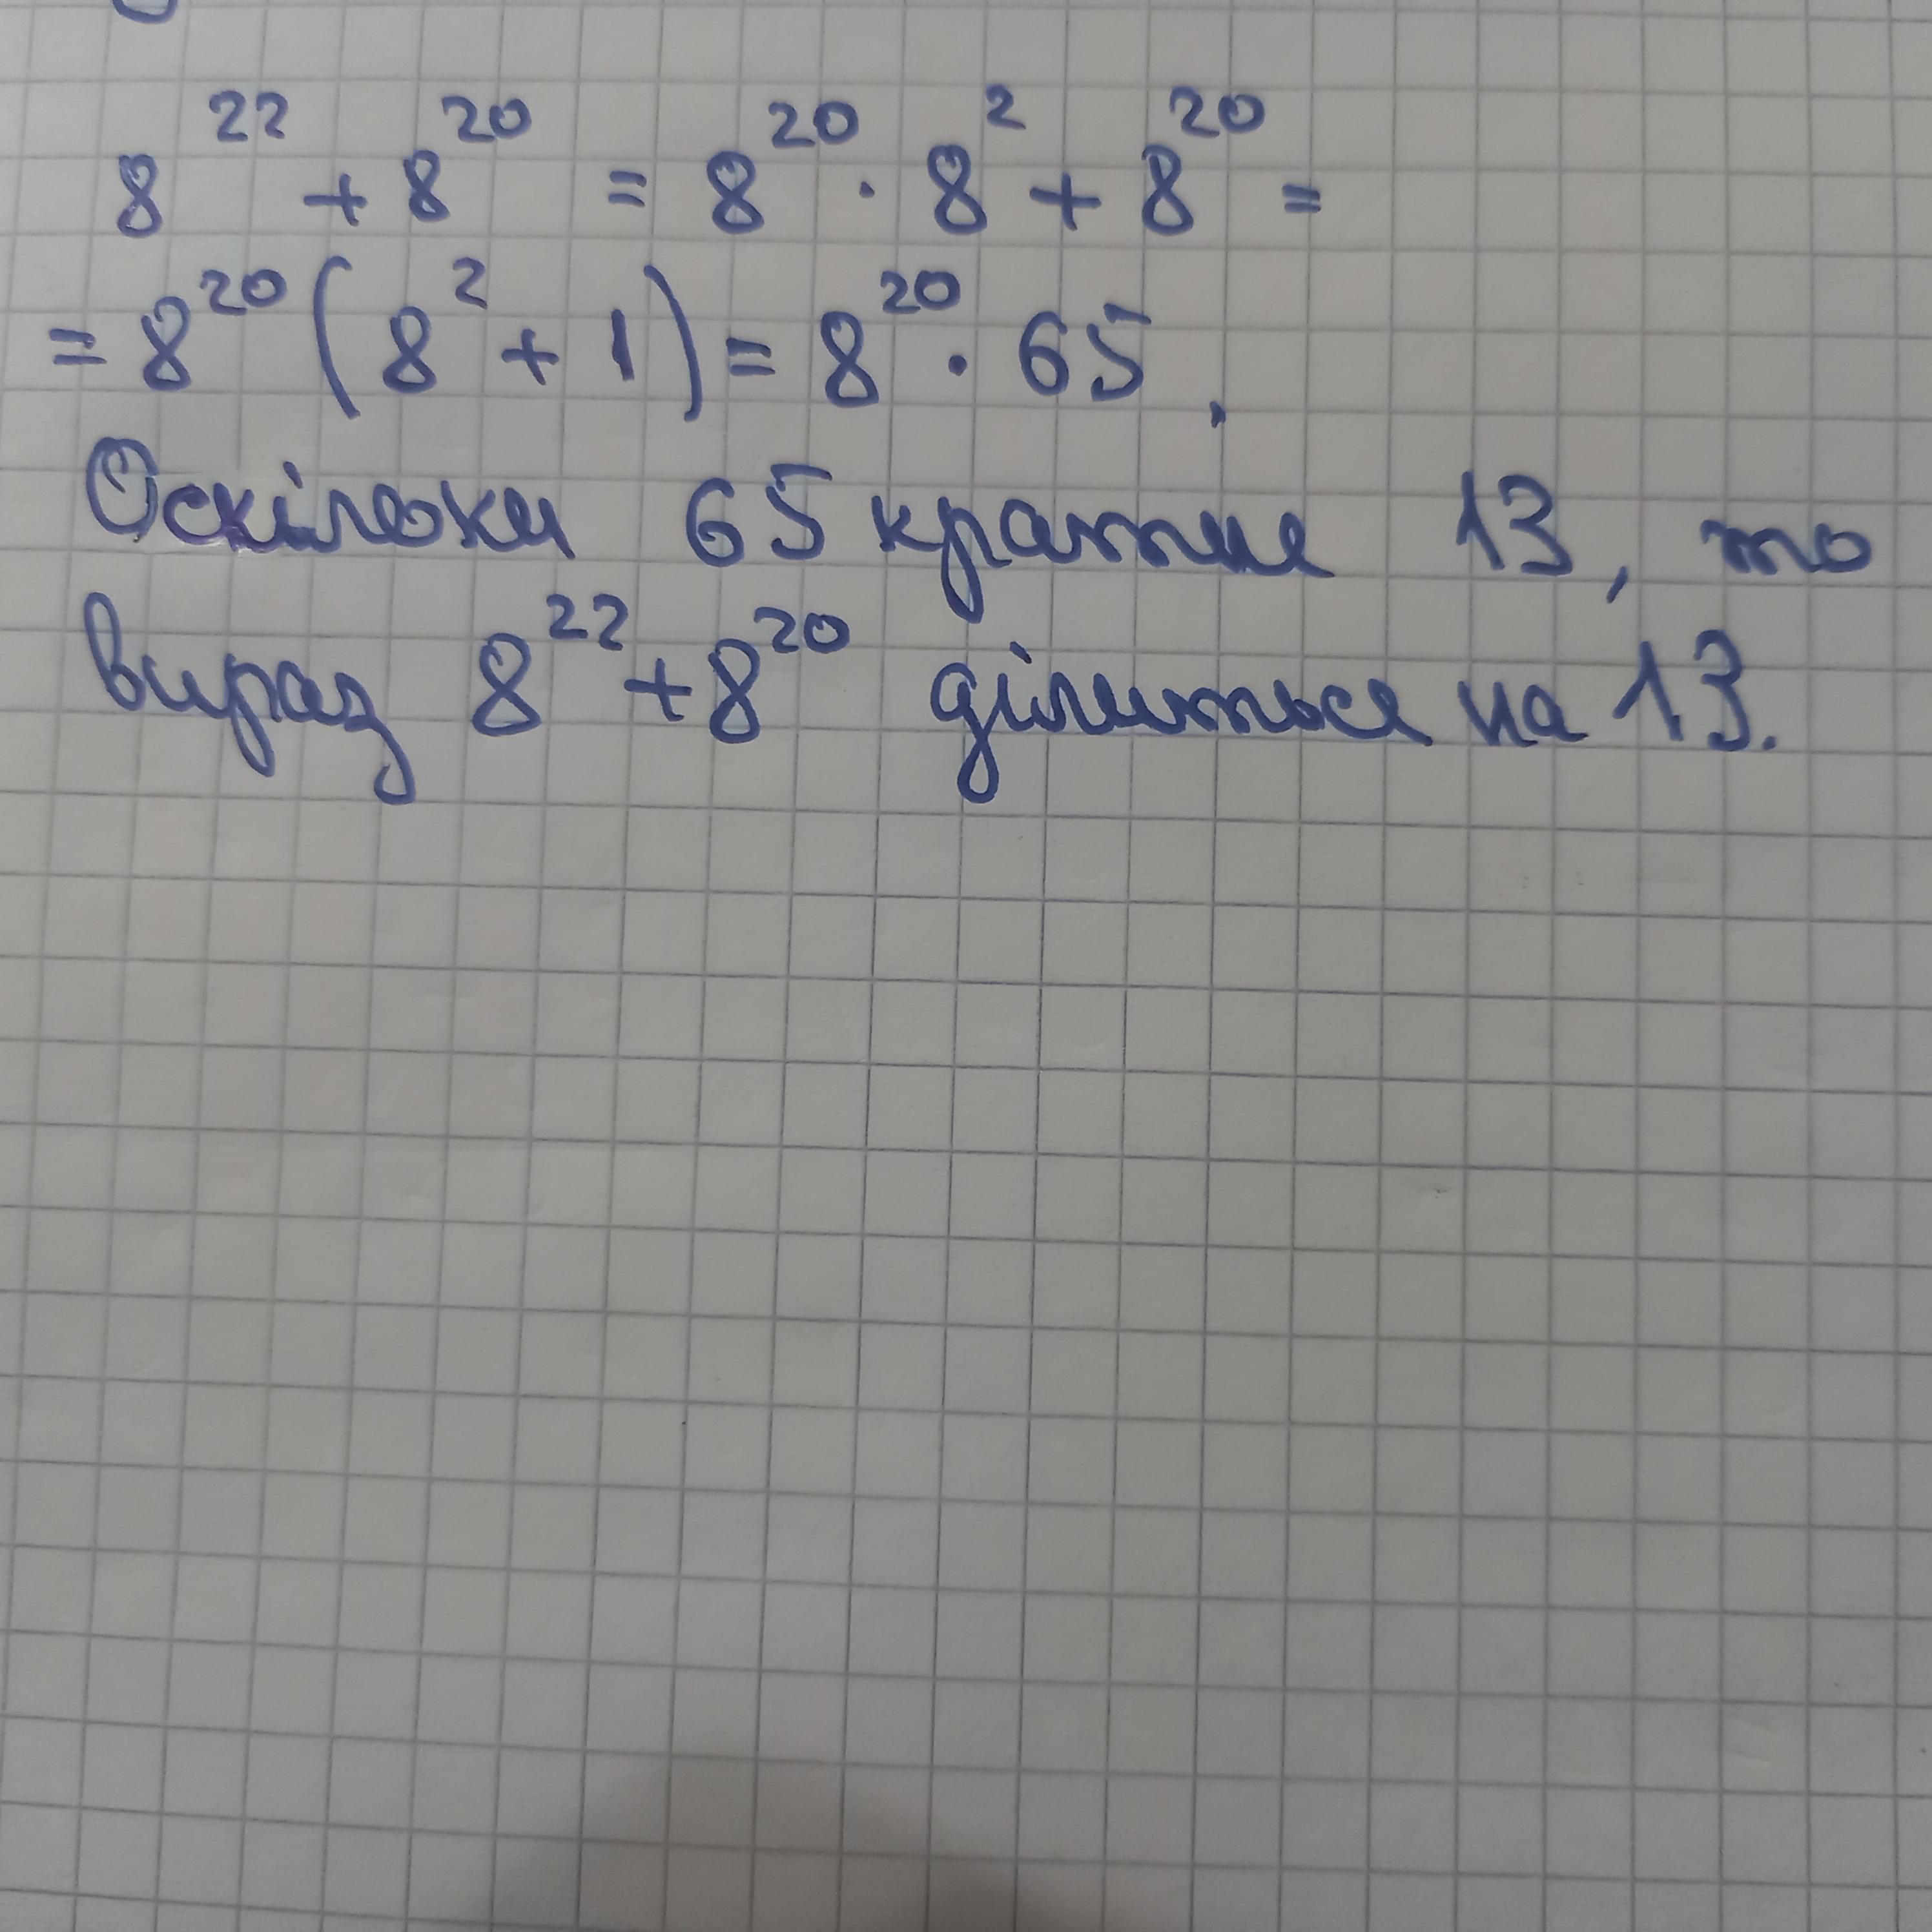 8²² + 8²⁰ = 8²⁰ · 8² + 8²⁰ =
= 8²⁰ (8² + 1) = 8²⁰ · 65.
Оскільки 65 кратне 13, то
вираз 8²² + 8²⁰ ділиться на 13.